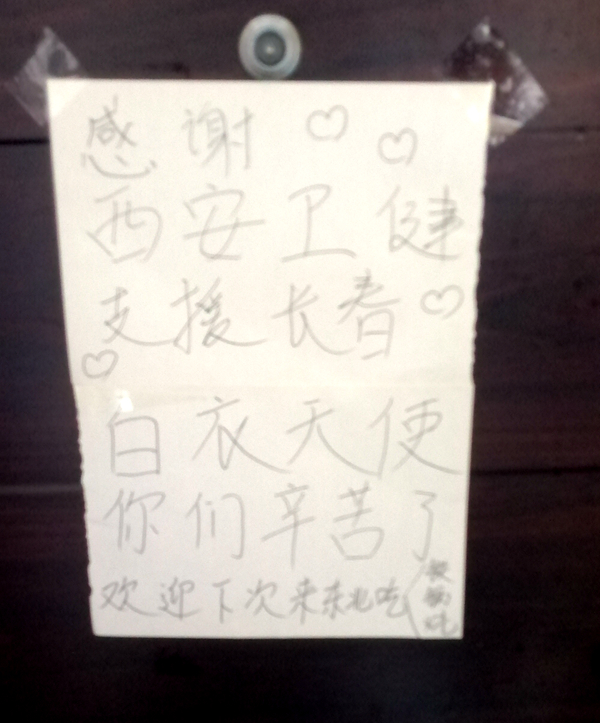 感谢
西安卫健
支援长春
白衣天使
你们辛苦了
欢迎下次来东北吃